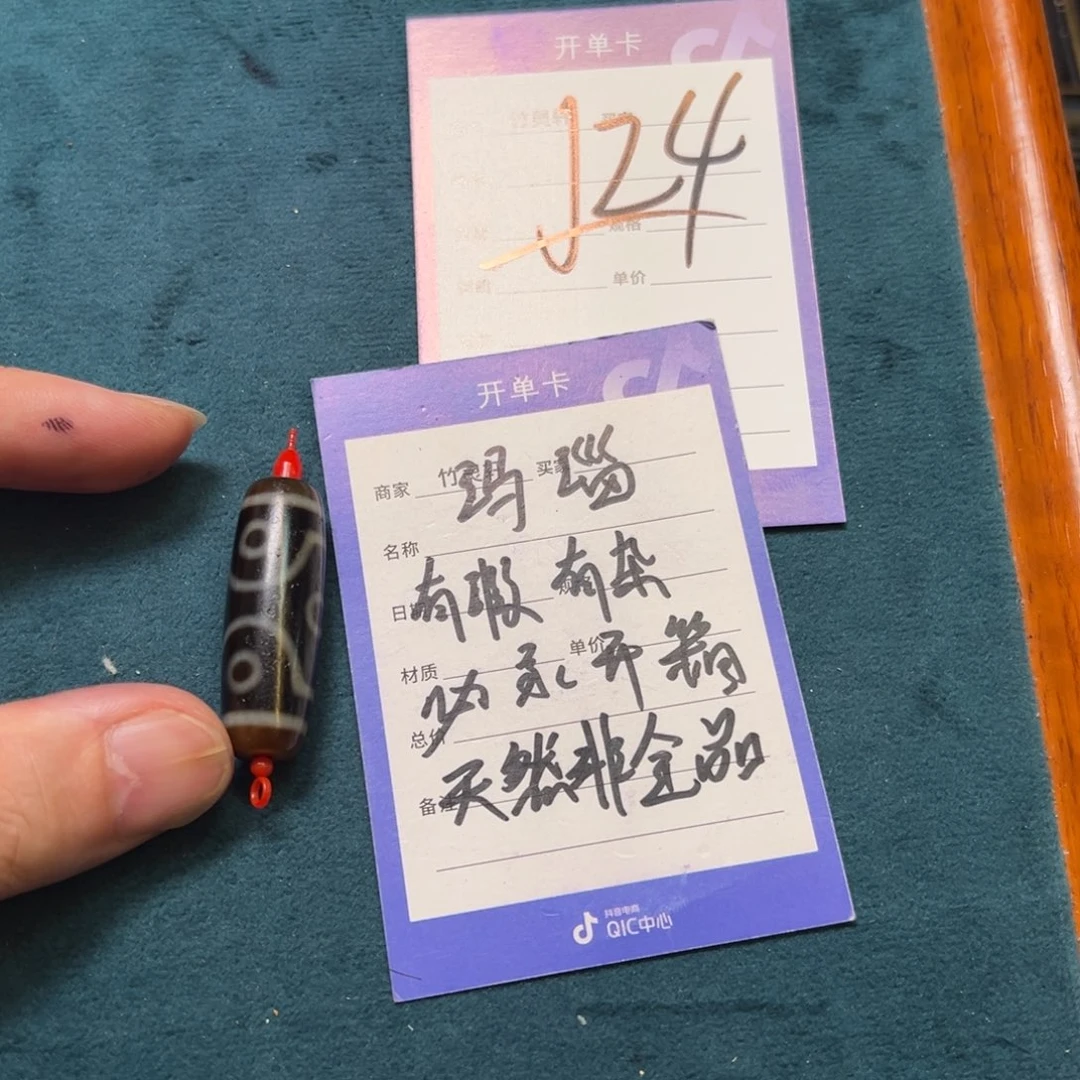 开单卡
J24
规格
单价
开单卡
商家
玛瑙
名称
有瑕有杂
材质
单价
开箱
总价
天然非全品
备注
抖音电商
QIC中心